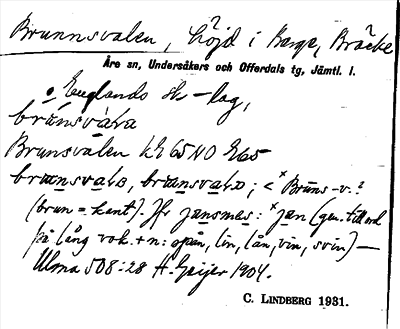 Brunnsvalen, höjd i Berge, Bräcke
Åre sn, Undersåkers och Offerdals tg, Jämtl. l.
Englands sk-lag,
brúnsvàɫa
Brunsvalen
brunsvalɒ, brunsvalɒ; < *Brūns-v.?
(brun = kant). Jfr jansmes: *jan (gen. till ord
på lång vok. + n: span, lin, lån, vin, svin) —
Ulma 508:28 H. Geijer 1904.
C. LINDBERG 1931.